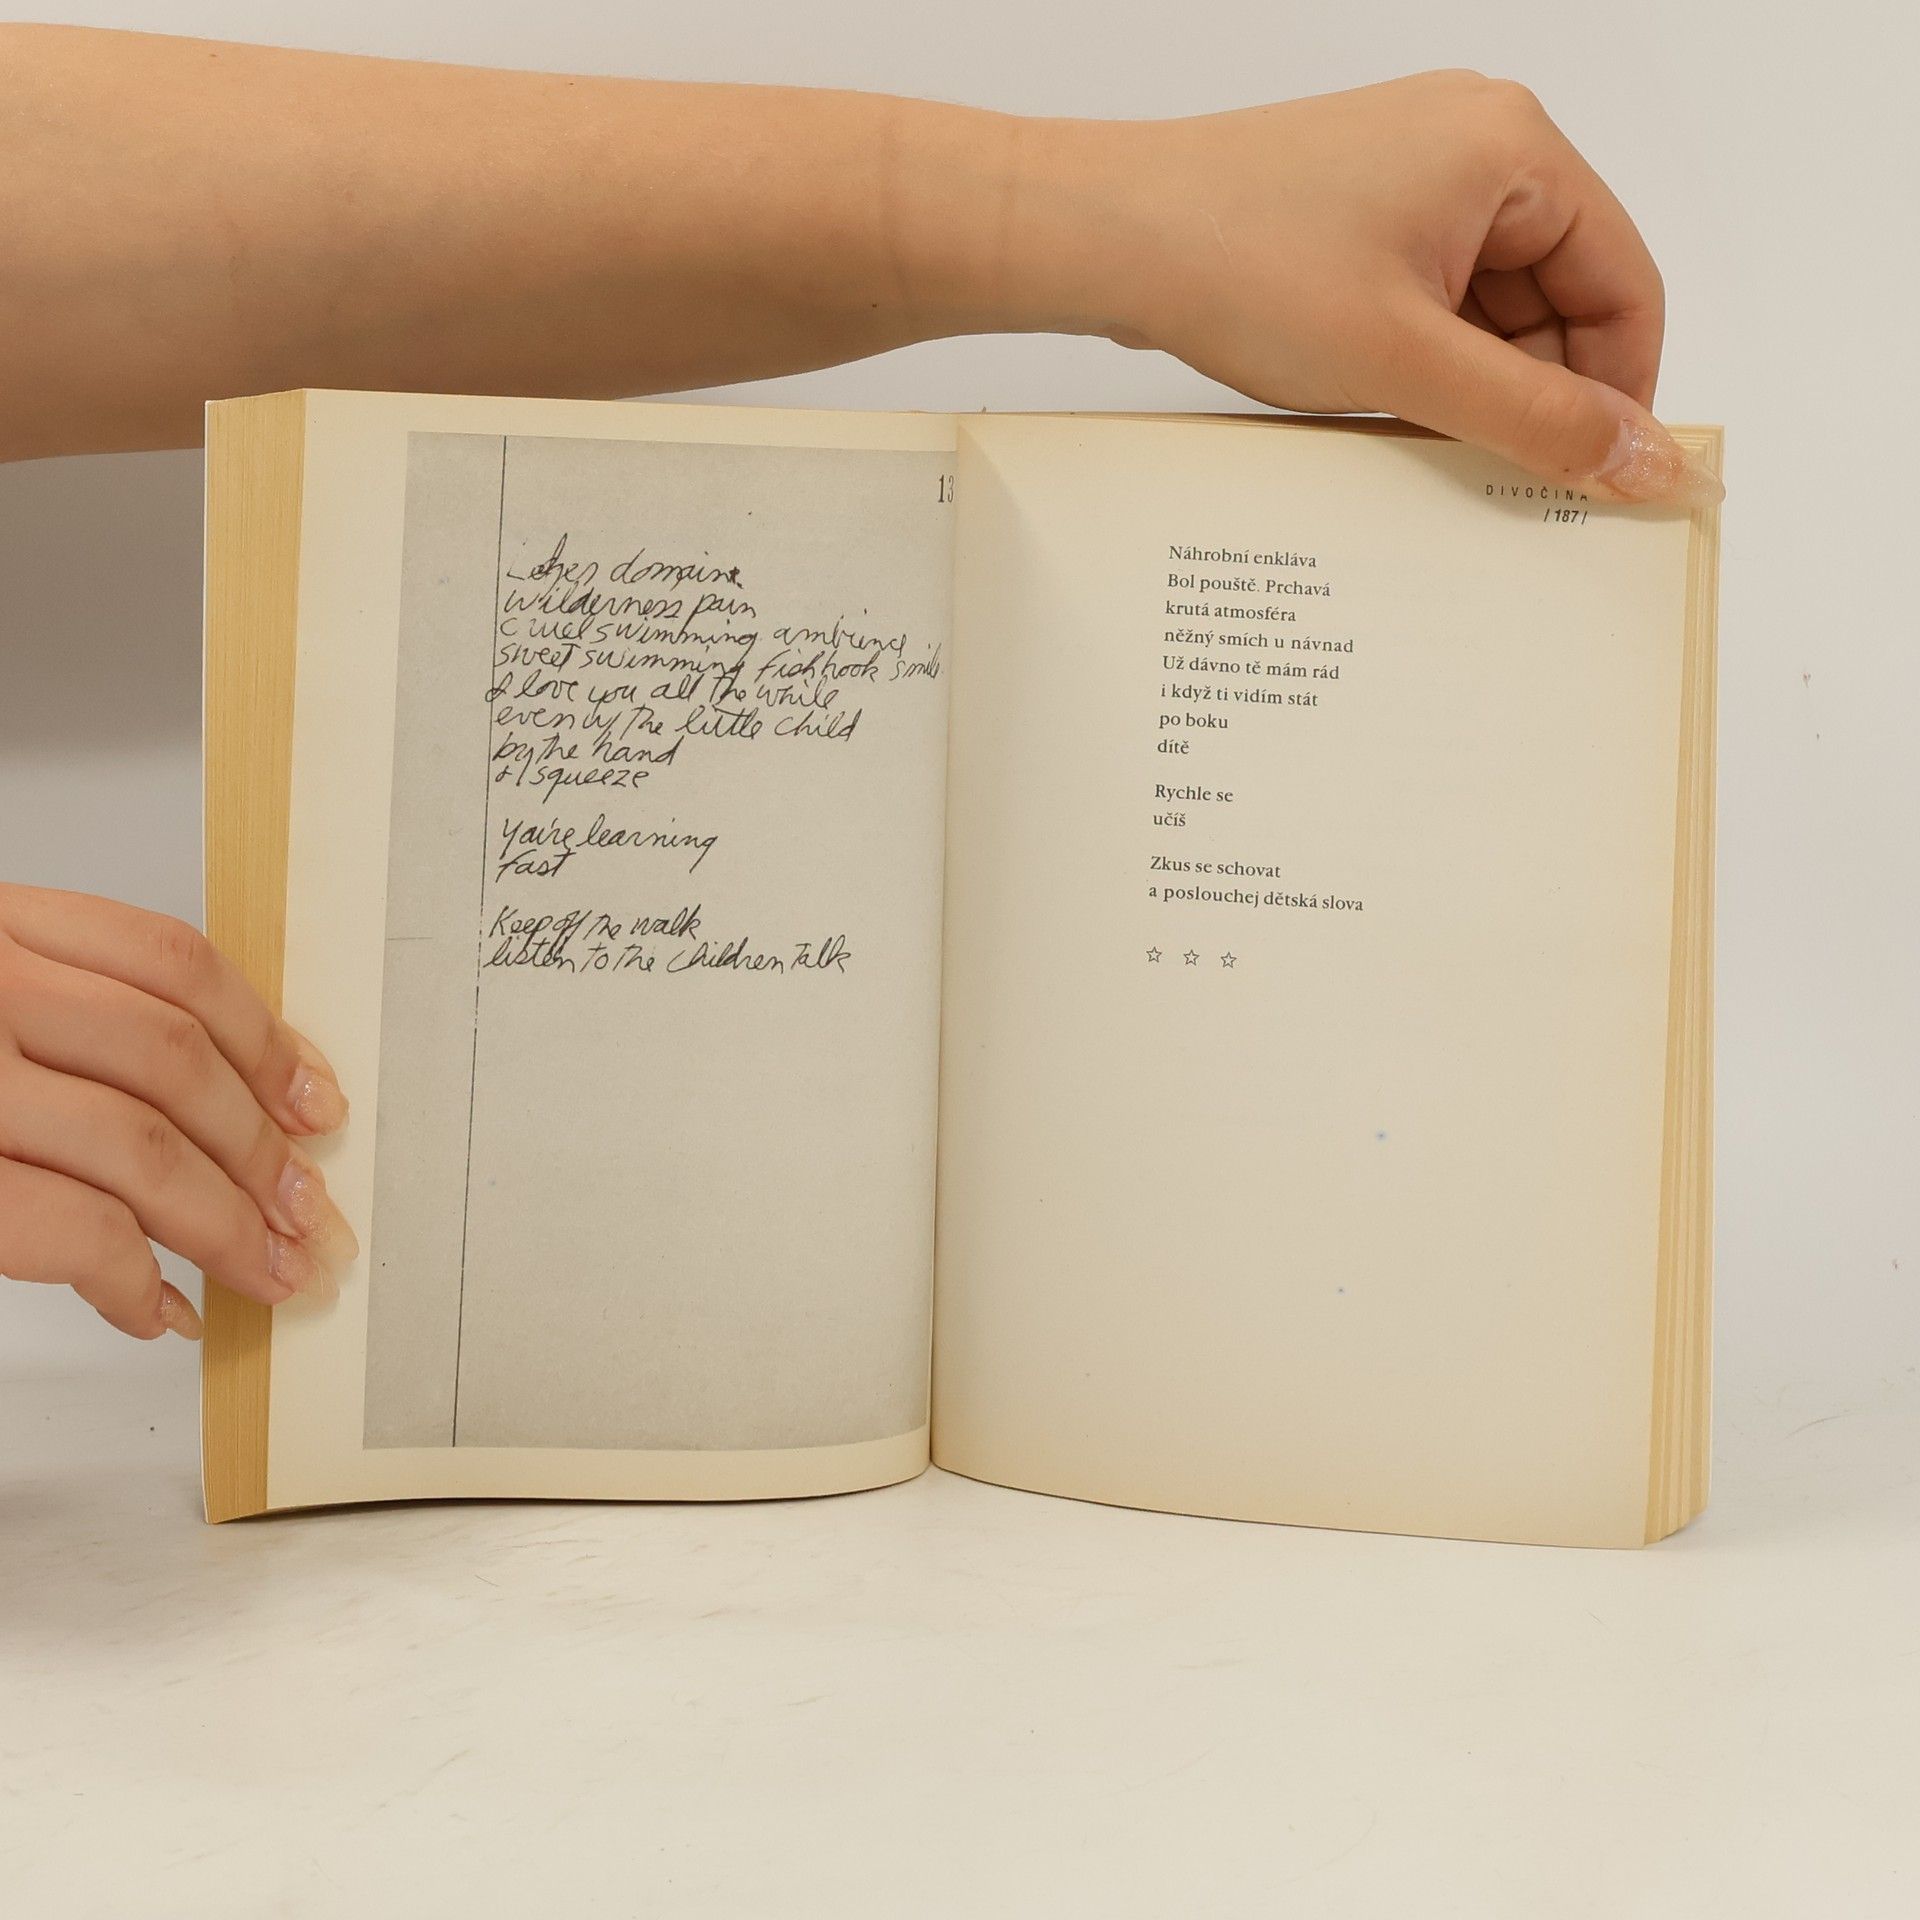 13
domain
wilderness pain
cruel swimming ambience
sweet swimming fishhook smile
I love you all the while
even w/ the little child
by the hand
& squeeze
You're learning
fast
Keep off the walk
listen to the children talk
DIVOČINA
/187/
Náhrobní enkláva
Bol pouště. Prchavá
krutá atmosféra
něžný smích u návnad
Už dávno tě mám rád
i když ti vidím stát
po boku
dítě
Rychle se
učíš
Zkus se schovat
a poslouchej dětská slova
☆ ☆ ☆